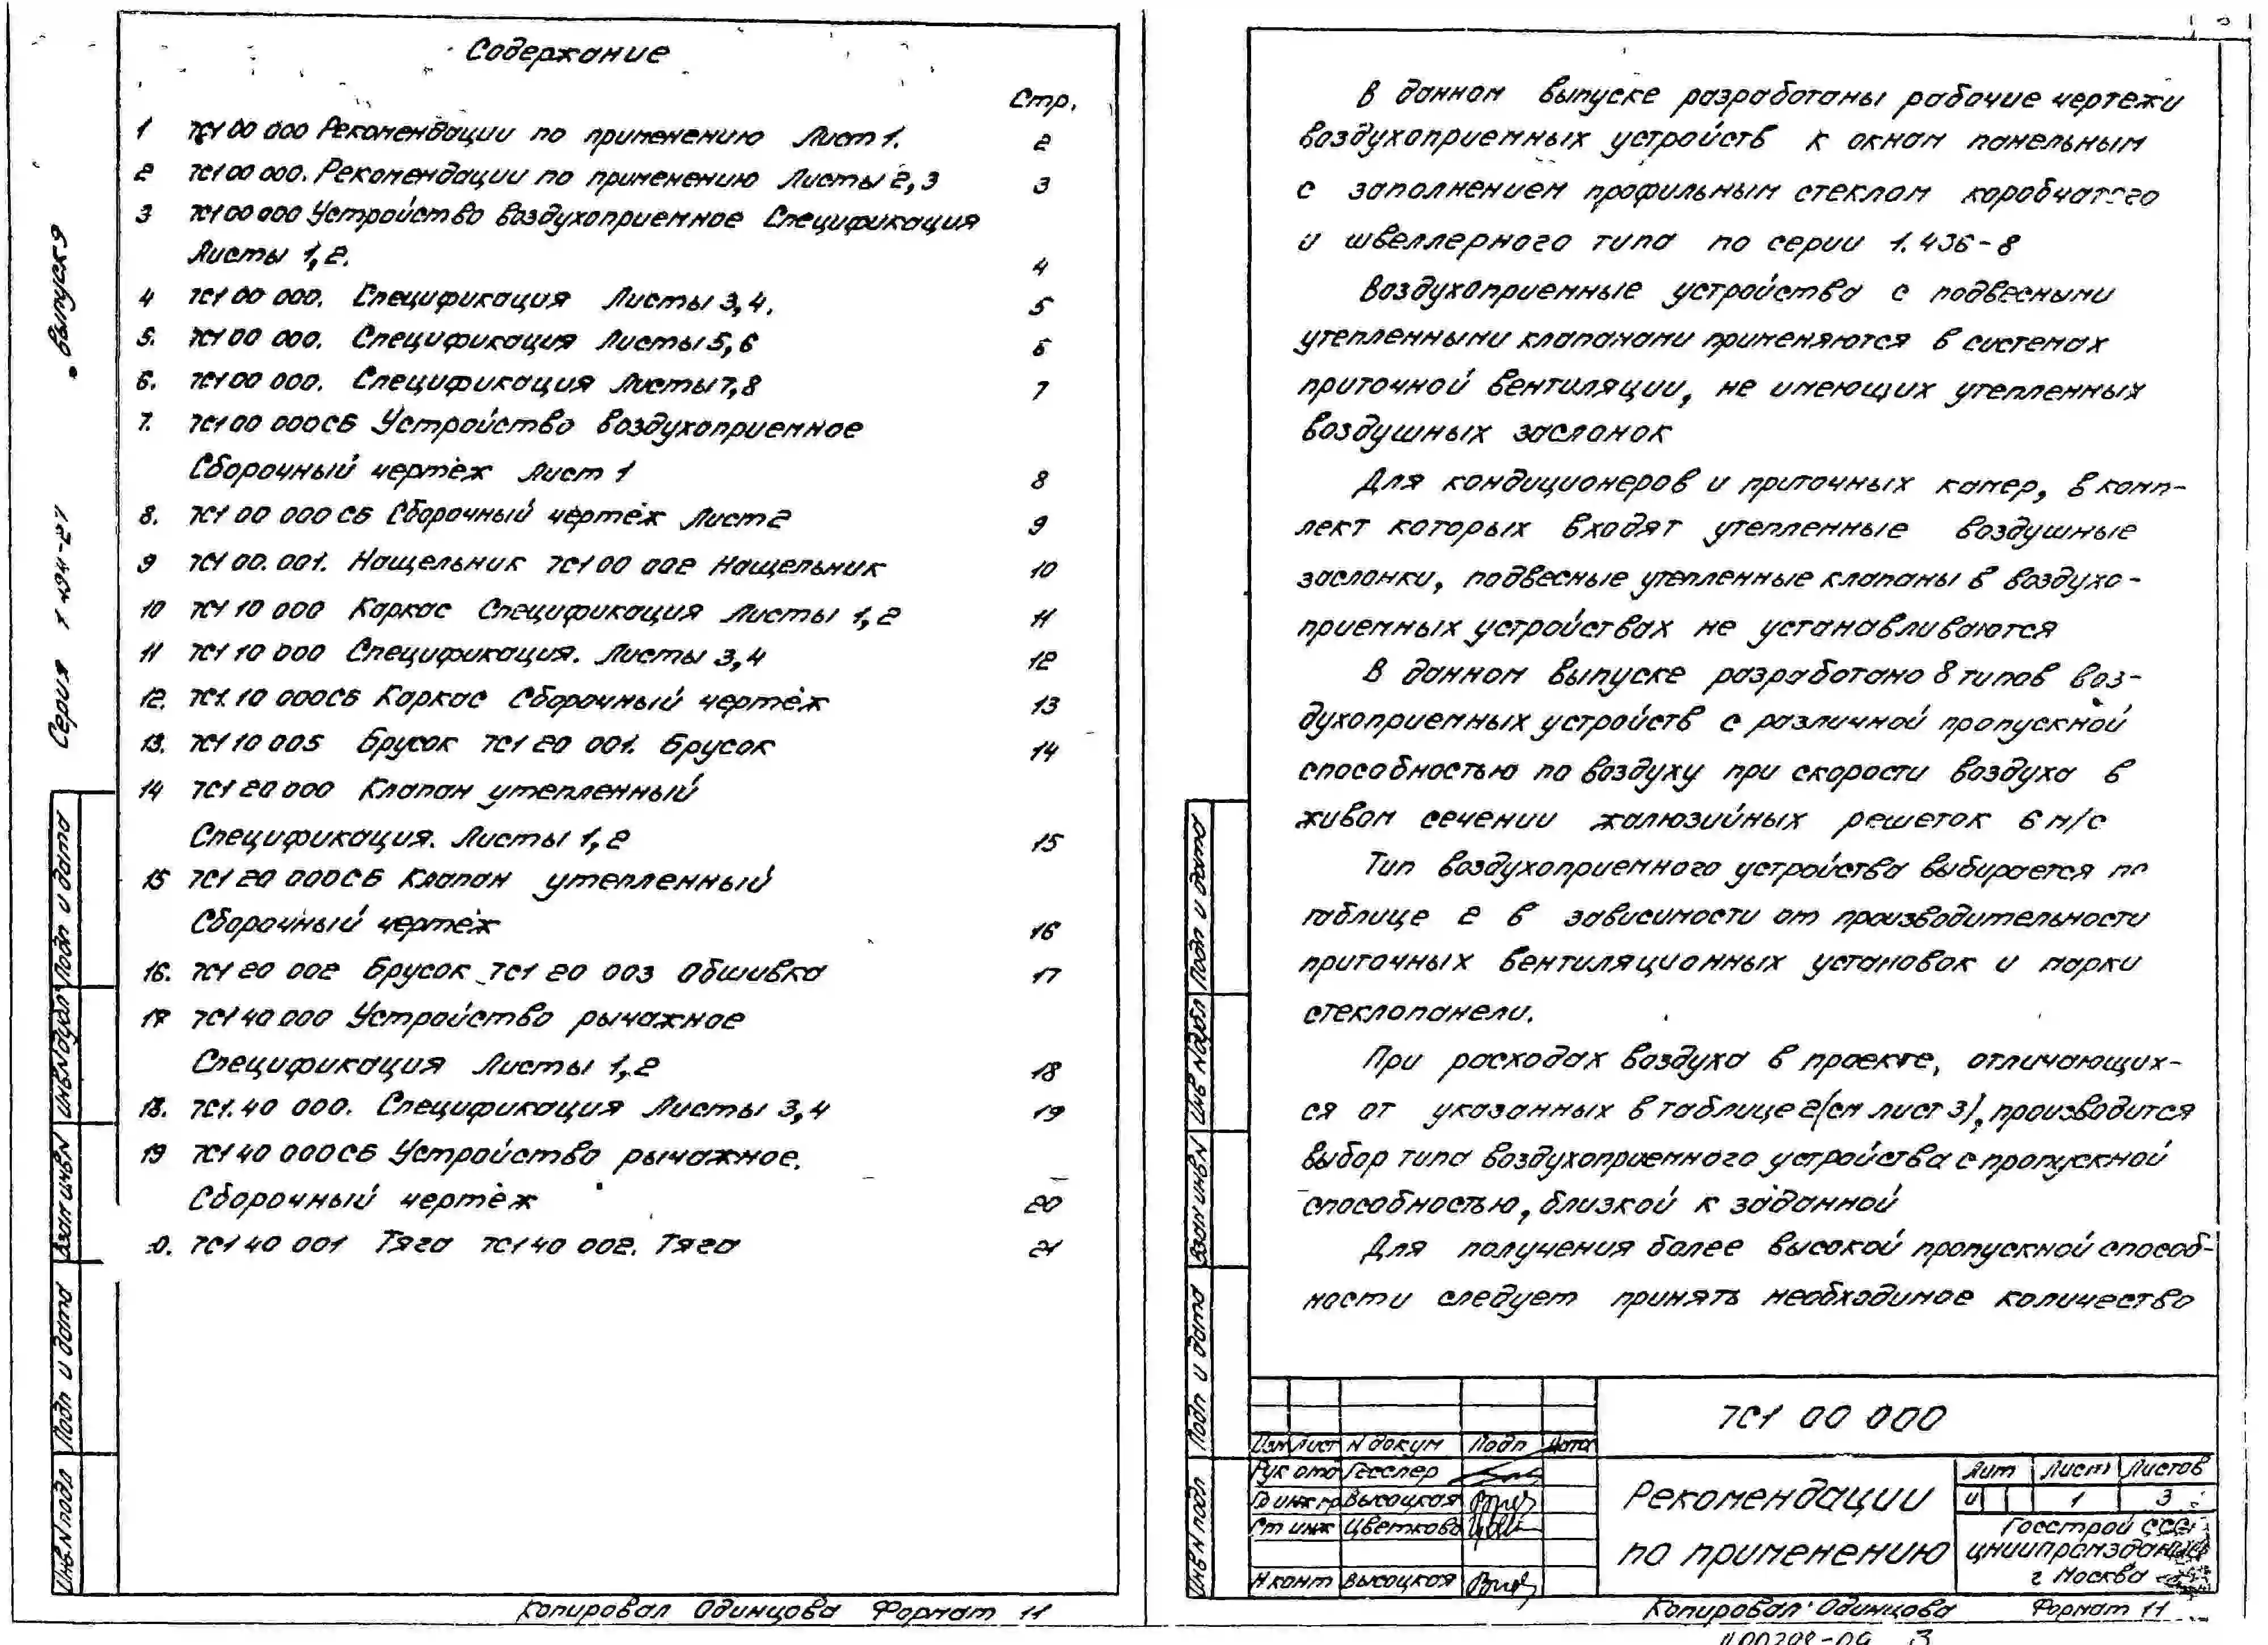 Содержание
Стр.
1 7С1 00 000 Рекомендации по применению Лист 1. 2
2 7С1 00 000. Рекомендации по применению Листы 2, 3 3
3 7С1 00 000 Устройство воздухоприемное Спецификация
Листы 1, 2. 4
4 7С1 00 000. Спецификация Листы 3, 4. 5
5. 7С1 00 000. Спецификация Листы 5, 6 6
6. 7С1 00 000. Спецификация Листы 7, 8 7
7. 7С1 00 000СБ Устройство воздухоприемное
Сборочный чертёж Лист 1 8
8. 7С1 00 000 СБ Сборочный чертёж Лист 2 9
9 7С1 00. 001. Нащельник 7С1 00 002 Нащельник 10
10 7С1 10 000 Каркас Спецификация Листы 1, 2 11
11 7С1 10 000 Спецификация. Листы 3, 4 12
12. 7С1. 10 000СБ Каркас Сборочный чертёж 13
13. 7С1 10 005 Брусок 7С1 20 001. Брусок 14
14 7С1 20 000 Клапан утепленный
Спецификация. Листы 1, 2 15
15 7С1 20 000СБ Клапан утепленный
Сборочный чертёж 16
16. 7С1 20 002 Брусок 7С1 20 003 Обшивка 17
17 7С1 40 000 Устройство рычажное
Спецификация Листы 1, 2 18
18. 7С1. 40 000. Спецификация Листы 3, 4 19
19 7С1 40 000СБ Устройство рычажное.
Сборочный чертёж 20
0. 7С1 40 001 Тяга 7С1 40 002. Тяга 21
Серия 1 494-27 Выпуск 9
Подп и дата
Инв N дубл
Взам инв N
Подп и дата
Инв N подл
Копировал Одинцова Формат 11
В данном выпуске разработаны рабочие чертежи
воздухоприемных устройств к окнам панельным
с заполнением профильным стеклом коробчатого
и швеллерного типа по серии 1. 436-8
Воздухоприемные устройства с подвесными
утепленными клапанами применяются в системах
приточной вентиляции, не имеющих утепленных
воздушных заслонок
Для кондиционеров и приточных камер, в комп-
лект которых входят утепленные воздушные
заслонки, подвесные утепленные клапаны в воздухо-
приемных устройствах не устанавливаются
В данном выпуске разработано 8 типов воз-
духоприемных устройств с различной пропускной
способностью по воздуху при скорости воздуха в
живом сечении жалюзийных решеток 6 м/с
Тип воздухоприемного устройства выбирается по
таблице 2 в зависимости от производительности
приточных вентиляционных установок и марки
стеклопанели.
При расходах воздуха в проекте, отличающих-
ся от указанных в таблице 2 (см лист 3), производится
выбор типа воздухоприемного устройства с пропускной
способностью, близкой к заданной
Для получения более высокой пропускной способ-
ности следует принять необходимое количество
Подп и дата
Инв N дубл
Взам инв N
Подп и дата
Инв N подл
7С1 00 000
Изм Лист N докум Подп Дата
Рук отд Гесслер
Гл инж пр Высоцкая
Ст инж Цветкова
Н конт Высоцкая
Рекомендации
по применению
Лит Лист Листов
И 1 3
Госстрой СССР
ЦНИИпромзданий
г Москва
Копировал Одинцова Формат 11
3